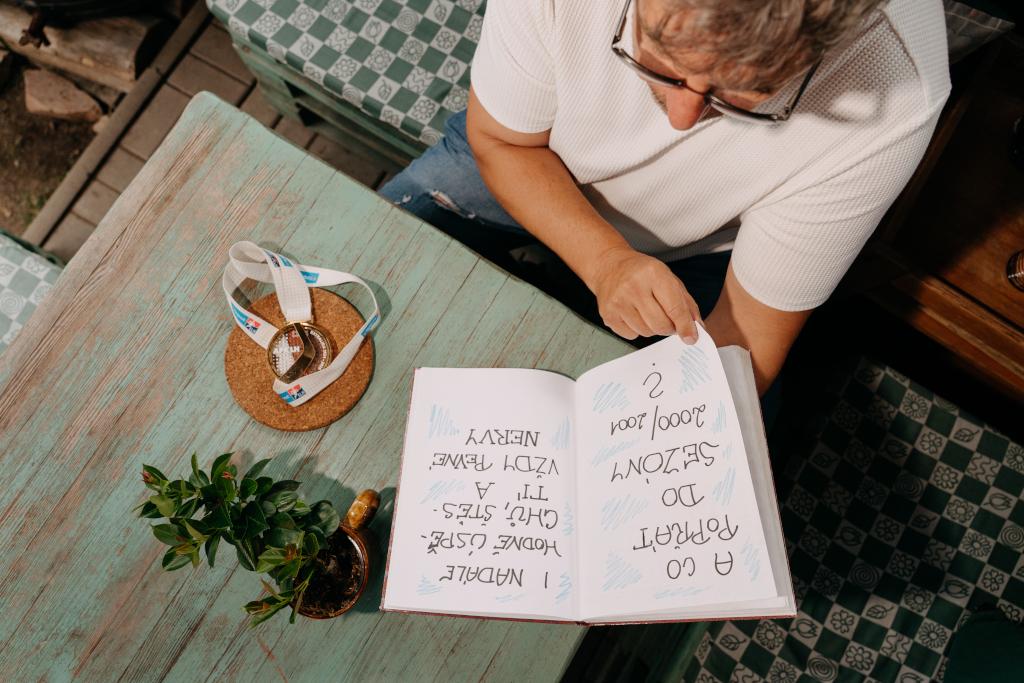 A CO
POPŘÁT
DO
SEZÓNY
2000/2001
?
I NADALE
HODNĚ ÚSPĚ-
CHŮ, ŠTĚS-
TÍ A
VŽDY PEVNÉ
NERVY